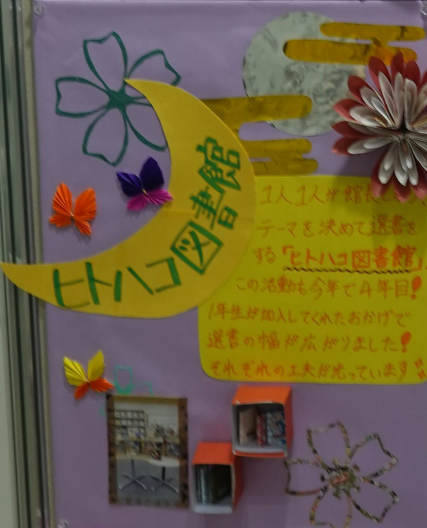 ヒトハコ図書館
1人1人が館長と
テーマを決めて選書を
する「ヒトハコ図書館」
この活動も今年で4年目!
1年生が加入してくれたおかげで
選書の幅が広がりました!
それぞれの工夫が光っています